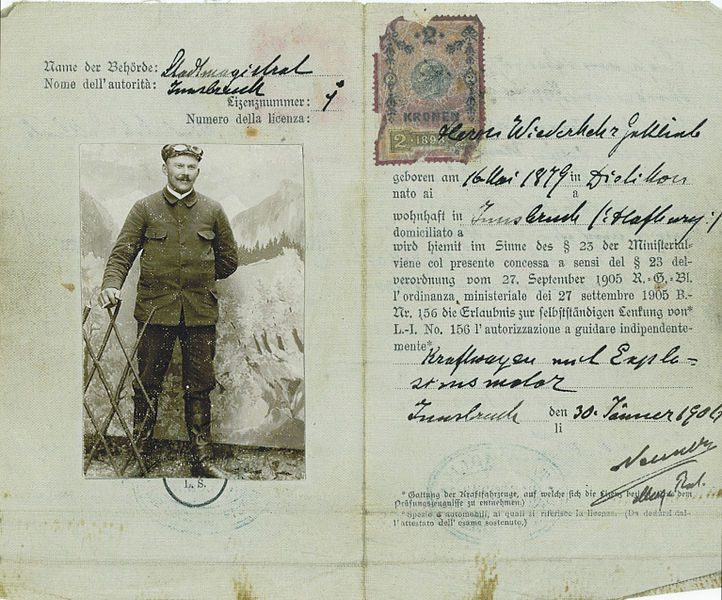 Name der Behörde: Stadtmagistrat
Nome dell'autorità: Innsbruck
Lizenznummer: 1
Numero della licenza:
L. S.
2
KRONEN
2 1898
Herrn Wiederkehr Gottlieb
geboren am 16 Mai 1879 in Dietikon
nato ai a
wohnhaft in Innsbruck (: Hofburg :)
domiciliato a
wird hiemit im Sinne des § 23 der Ministerial-
viene col presente concessa a sensi del § 23 del-
verordnung vom 27. September 1905 R.-G.-Bl.
l'ordinanza ministeriale dei 27 settembre 1905 B.-
Nr. 156 die Erlaubnis zur selbstständigen Lenkung von*
L.-I. No. 156 l'autorizzazione a guidare indipendente-
mente*
Kraftwagen mit Explo-
sionsmotor
Innsbruck den 30. Jänner 1906
li
* Gattung der Kraftfahrzeuge, auf welche sich die Lizenz bezieht dem
Prüfungszeugnisse zu entnehmen.)
* Spezie d'automobili, ai quali si riferisce la licenza. (Da dedursi dal-
l'attestato dell'esame sostenuto.)